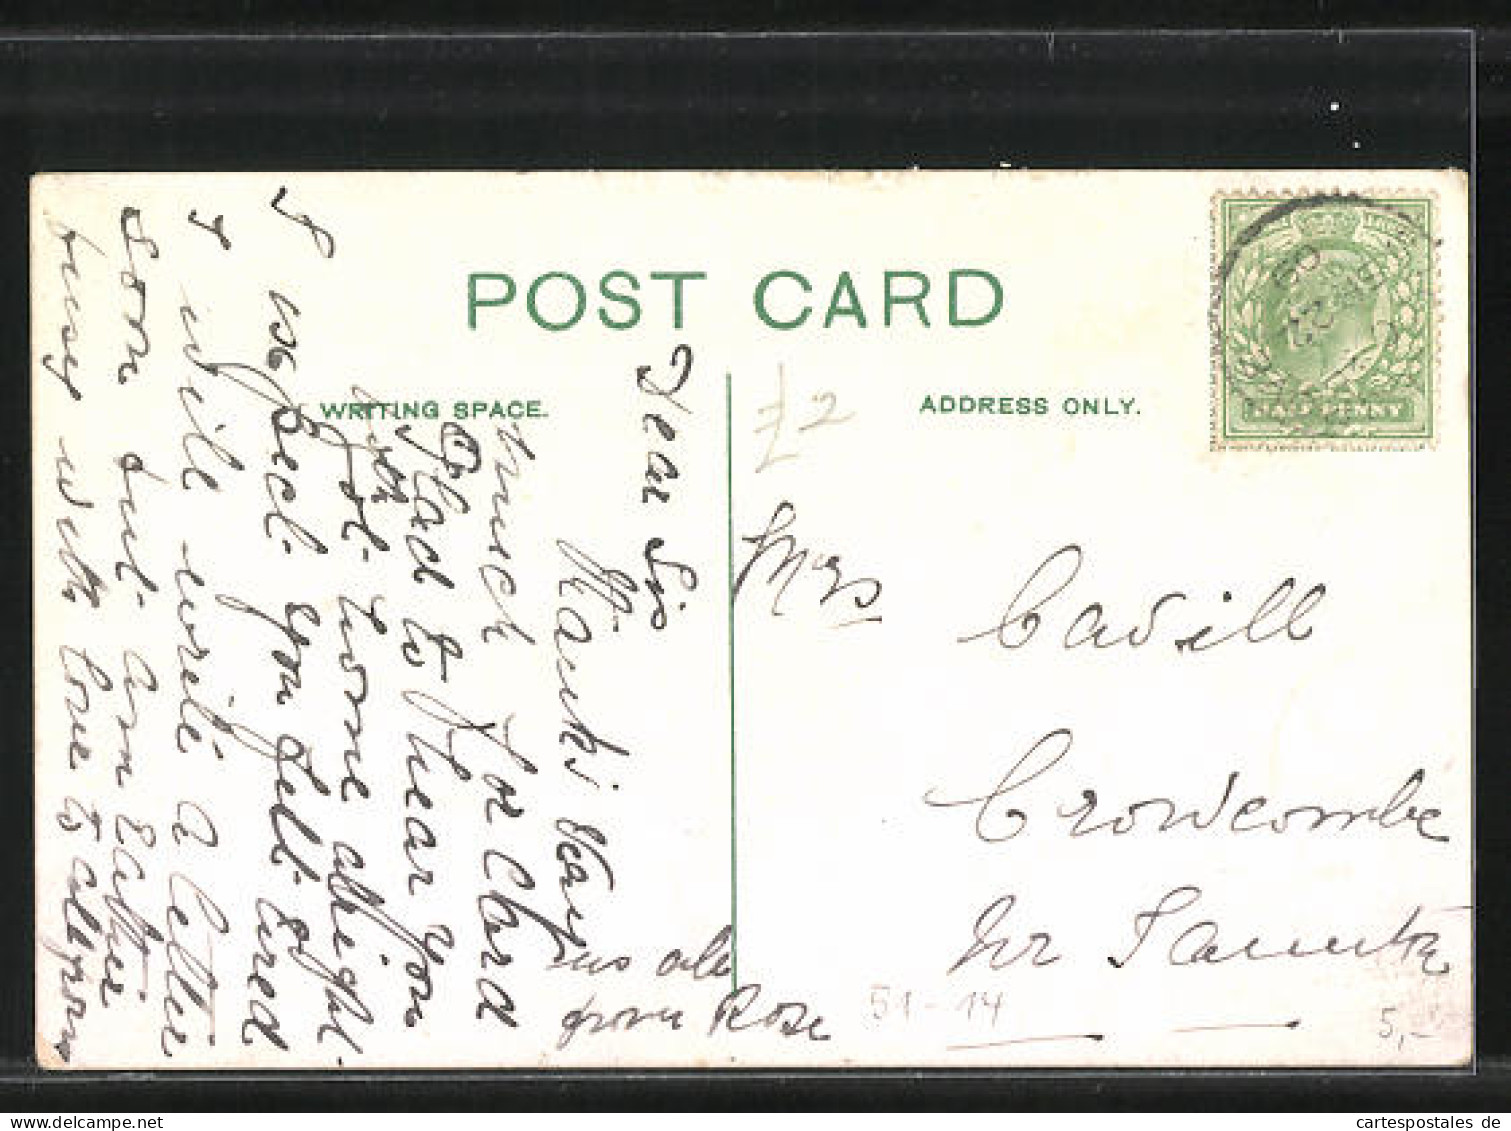 POST CARD
WRITING SPACE.
ADDRESS ONLY.
HALF PENNY
22
09
£2
Dear Sis
Thanks Very
much for Card
Glad to hear you
got home allright
I xpect you felt tired
I will write a letter
soon but am rather
busy with love to all from
us all
from Rose
Mrs Cavill
Crowcombe
Nr Taunton
51-14
5,-
cartespostales de